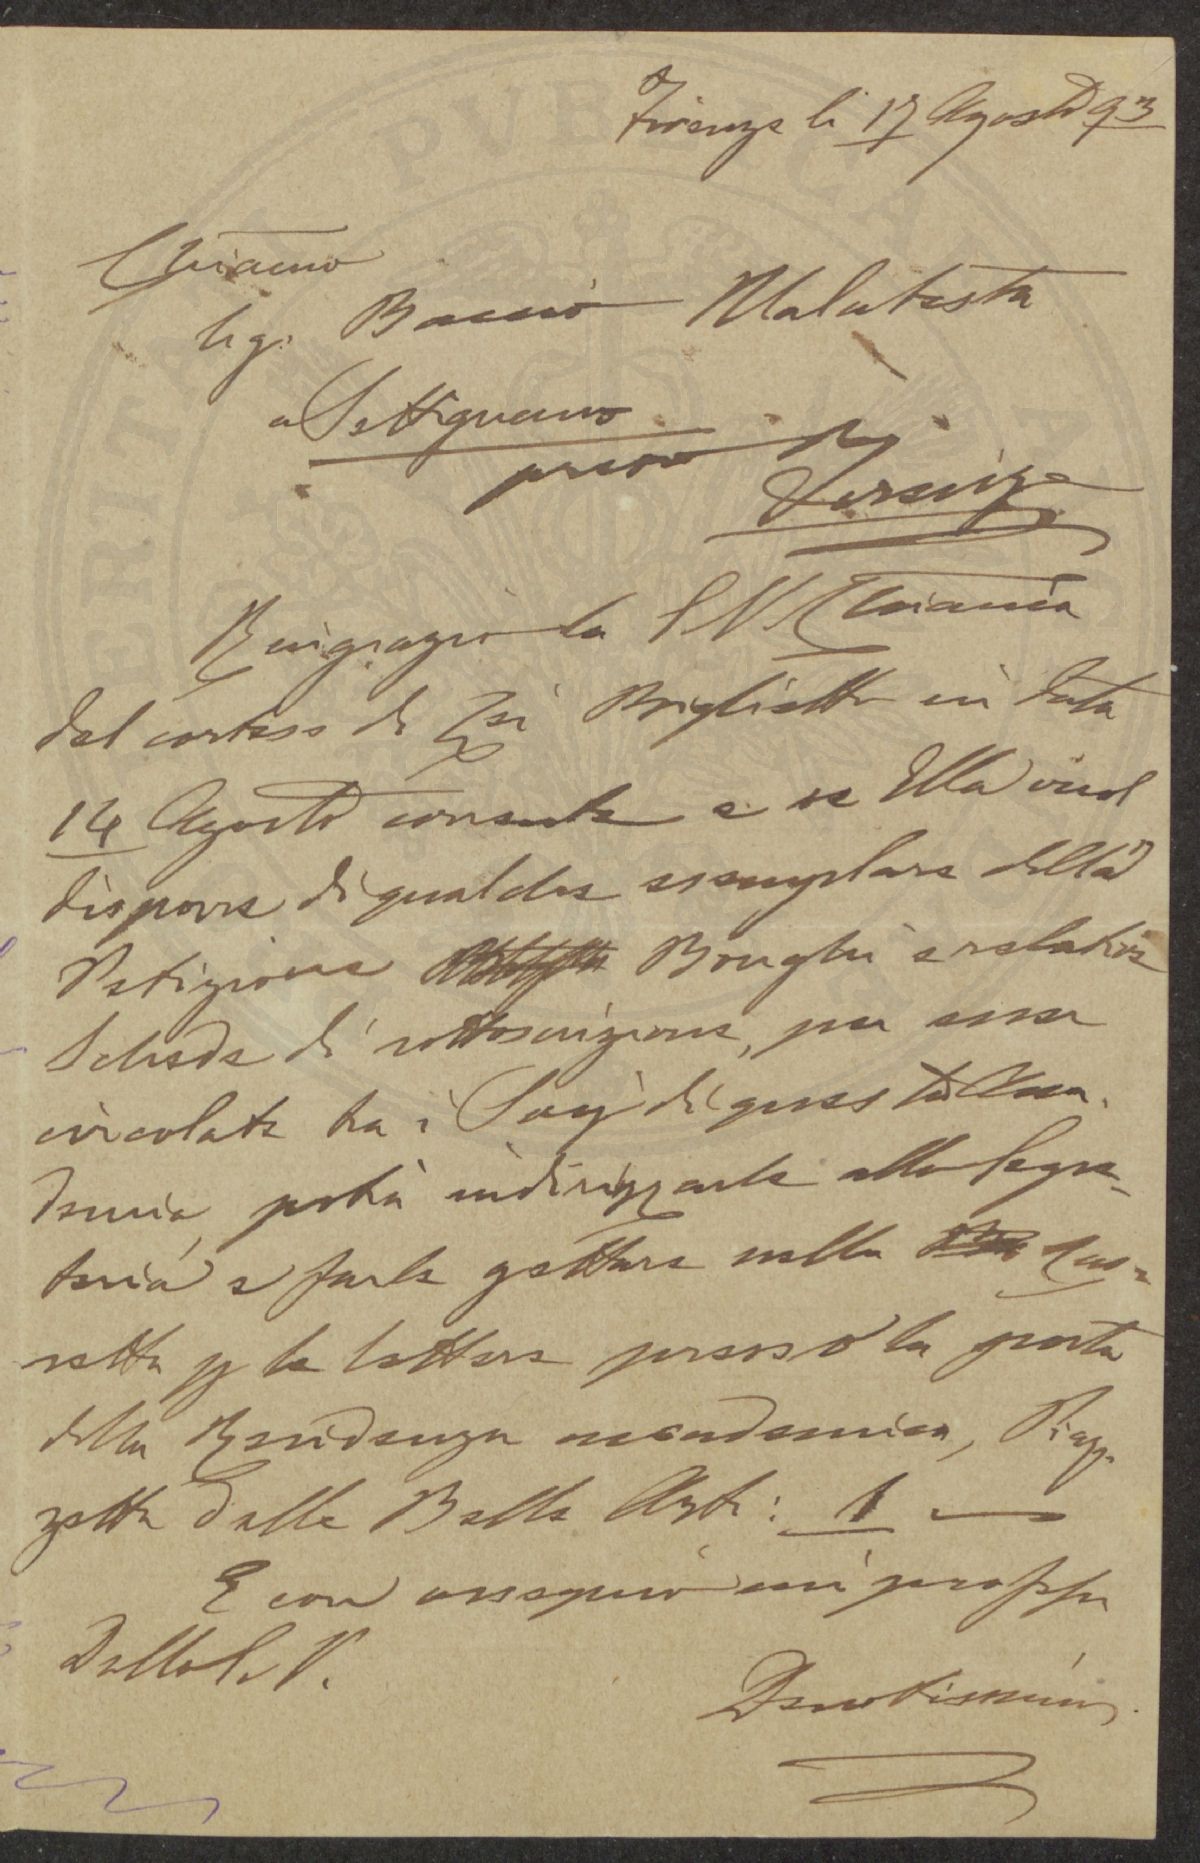 Firenze li 17 Agosto 93
Chiarmo
Sig. Baccio Malatesta
a Settignano
presso Firenze
Ringrazio la S V Chiarma
del cortese di Lei Biglietto in data
14 Agosto corrente e se Ella vuol
disporre di qualche esemplare della
Petizione Bonghi e relative
Schede di sottoscrizione, per esser
circolate tra i Socj di questa Acca-
demia, potrà indirizzarle alla Segre-
teria e farle gettare nella Cas-
setta p le lettere presso la porta
della Residenza accademica, Piaz-
zetta delle Belle Arti: 1
E con ossequio mi proffo
Della S. V.
Devotissimo